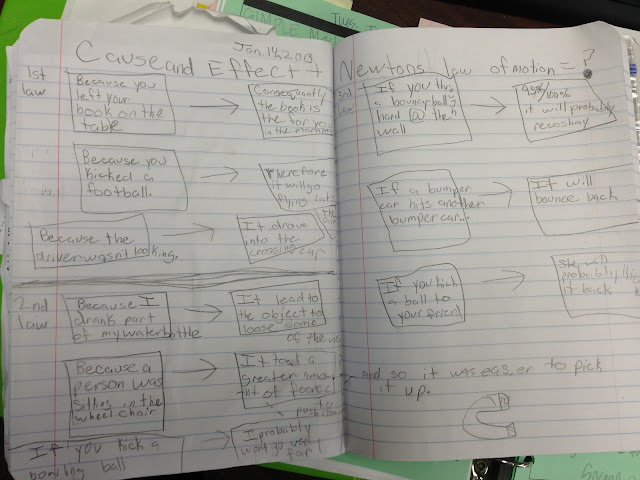 Jan. 14, 2013
Cause and Effect + Newtons law of motion = ?
1st
law
Because you
left your
book on the
table
Consequently
the book is
the for you
in the morning
Because you
kicked a
football.
therefore
it will go
flying
Because the
driver wasn't looking.
It drove
into the
crossing car
2nd
law
Because I
drank part
of my waterbottle
It lead to
the object to
loose some
of the
Because a
person was
sitting in the
wheel chair
It took a
greater amou
nt of
to
push
If you kick a
bowling ball
I probably
want go very
far
3rd
law
If you thro
a bouncy ball
hard @ the
wall
95%/100%
it will probably
recoshay
If a bumper
car hits another
bumper car..
It will
bounce back
If you kick
a ball to
your friend
She will
probably
it back
and so it was easier to pick
it up.
SIMPLE